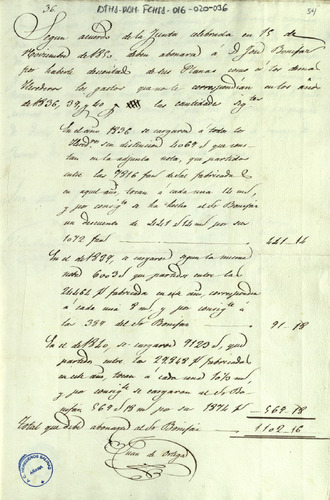 36.
DTHJ-DOM-FCHSJ-016-020-036
54
Segun acuerdo de la Junta celebrada en 15 de
Noviembre de 1840, deben abonarse á D. José Bonifaz
por haberle descontado de sus Planas como á los demas
Herederos los gastos que no le correspondian en los años
de 1836, 39, y 40 las cantidades sigtes
En el año 1836 se cargaron á todos los
Hereds. sin distincion 4069 que cons
tan en la adjunta nota, que partidos
entre las 7816 fans. de las fabricadas
en aquel año, tocan á cada una 14 ms,
y por consigte se ha hecho al Sr Bonifaz
un descuento de 441 14 ms por sus
1072 fans 441.14
En el de 1839, se cargaron segun la misma
nota 6003 que partidos entre las
24462 fabricadas en este año, corresponden
á cada una 8 ms, y por consigte á
las 388 del Sr Bonifaz 91.18
En el de 1840, se cargaron 9123, que
partidos entre las 29848 fabricadas
en este año, tocan á cada una 10 ms
y por consigte se cargaron al Sr Bo
nifaz 569 18 ms por sus 1874 569.18
Total que debe abonarse al Sr Bonifaz 1102.16
Juan de Ortega